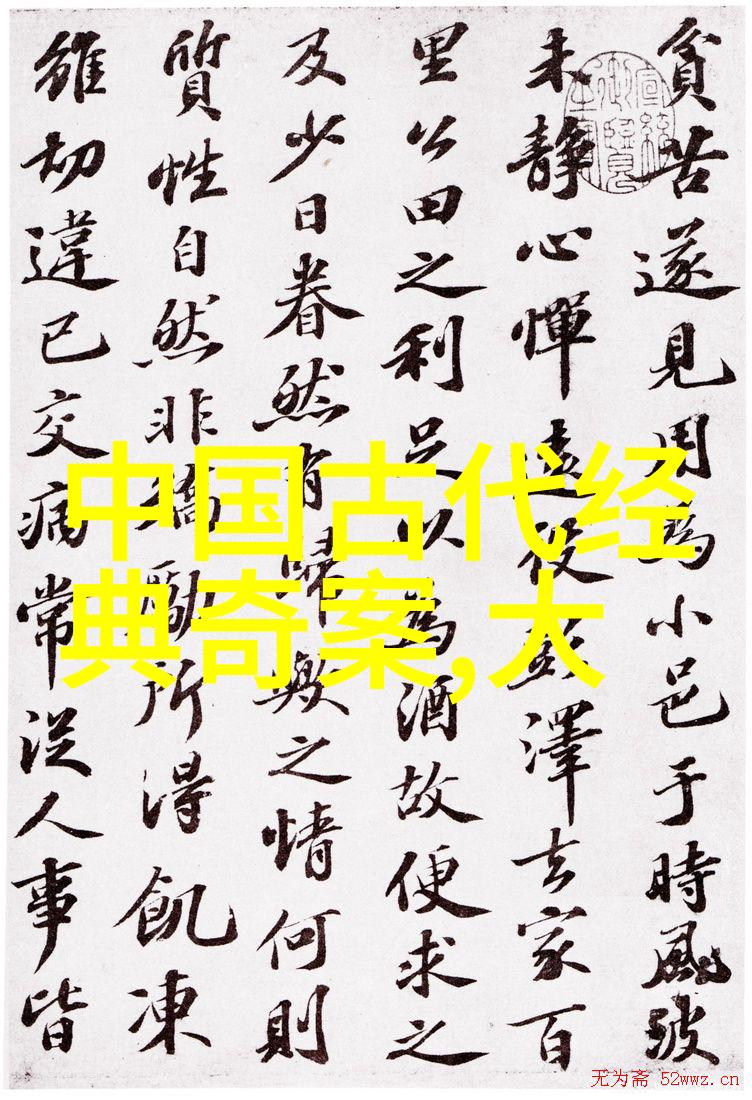 貧苦遂見用為小邑于時風波
未靜心憚遠役彭澤去家百
里公田之利足以為酒故便求之
及少日眷然有歸歟之情何則
質性自然非矯勵所得飢凍
雖切違已交病常從人事皆
中国古代经
典奇案,大
无为斋 52wwz.cn